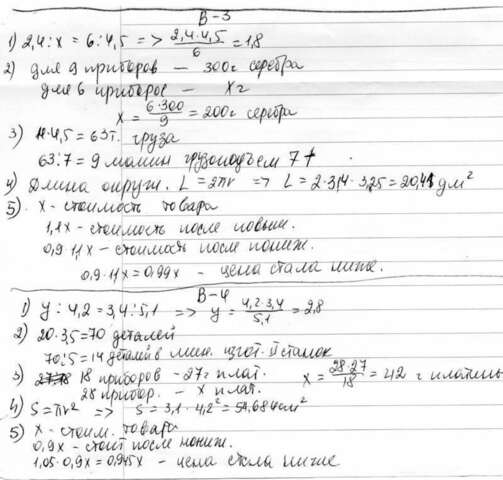 В-3
1) 2,4 : x = 6 : 4,5 => 2,4·4,5/6 = 1,8
2) для 9 приборов — 300г серебра
для 6 приборов — x г
x = 6·300/9 = 200г серебра
3) 4,5 = 63т. груза
63:7 = 9 машин грузоподъем 7т
4) Длина окруж. L = 2πr => L = 2·3,14·3,25 = 20,41 дм²
5) x - стоимость товара
1,1x - стоимость после повыш.
0,9·1,1x - стоимость после пониж.
0,9·1,1x = 0,99x - цена стала ниже.
В-4
1) y : 4,2 = 3,4 : 5,1 => y = 4,2·3,4/5,1 = 2,8
2) 20·3,5 = 70 деталей
70:5 = 14 деталей в мин. изгот. II станок
3) 18 приборов - 27г плат. x = 28·27/18 = 42 г платины
28 прибор. - x плат.
4) S = πr² => S = 3,1·4,2² = 54,684см²
5) x - стоим. товара
0,9x - стоит после пониж.
1,05·0,9x = 0,945x - цена стала ниже